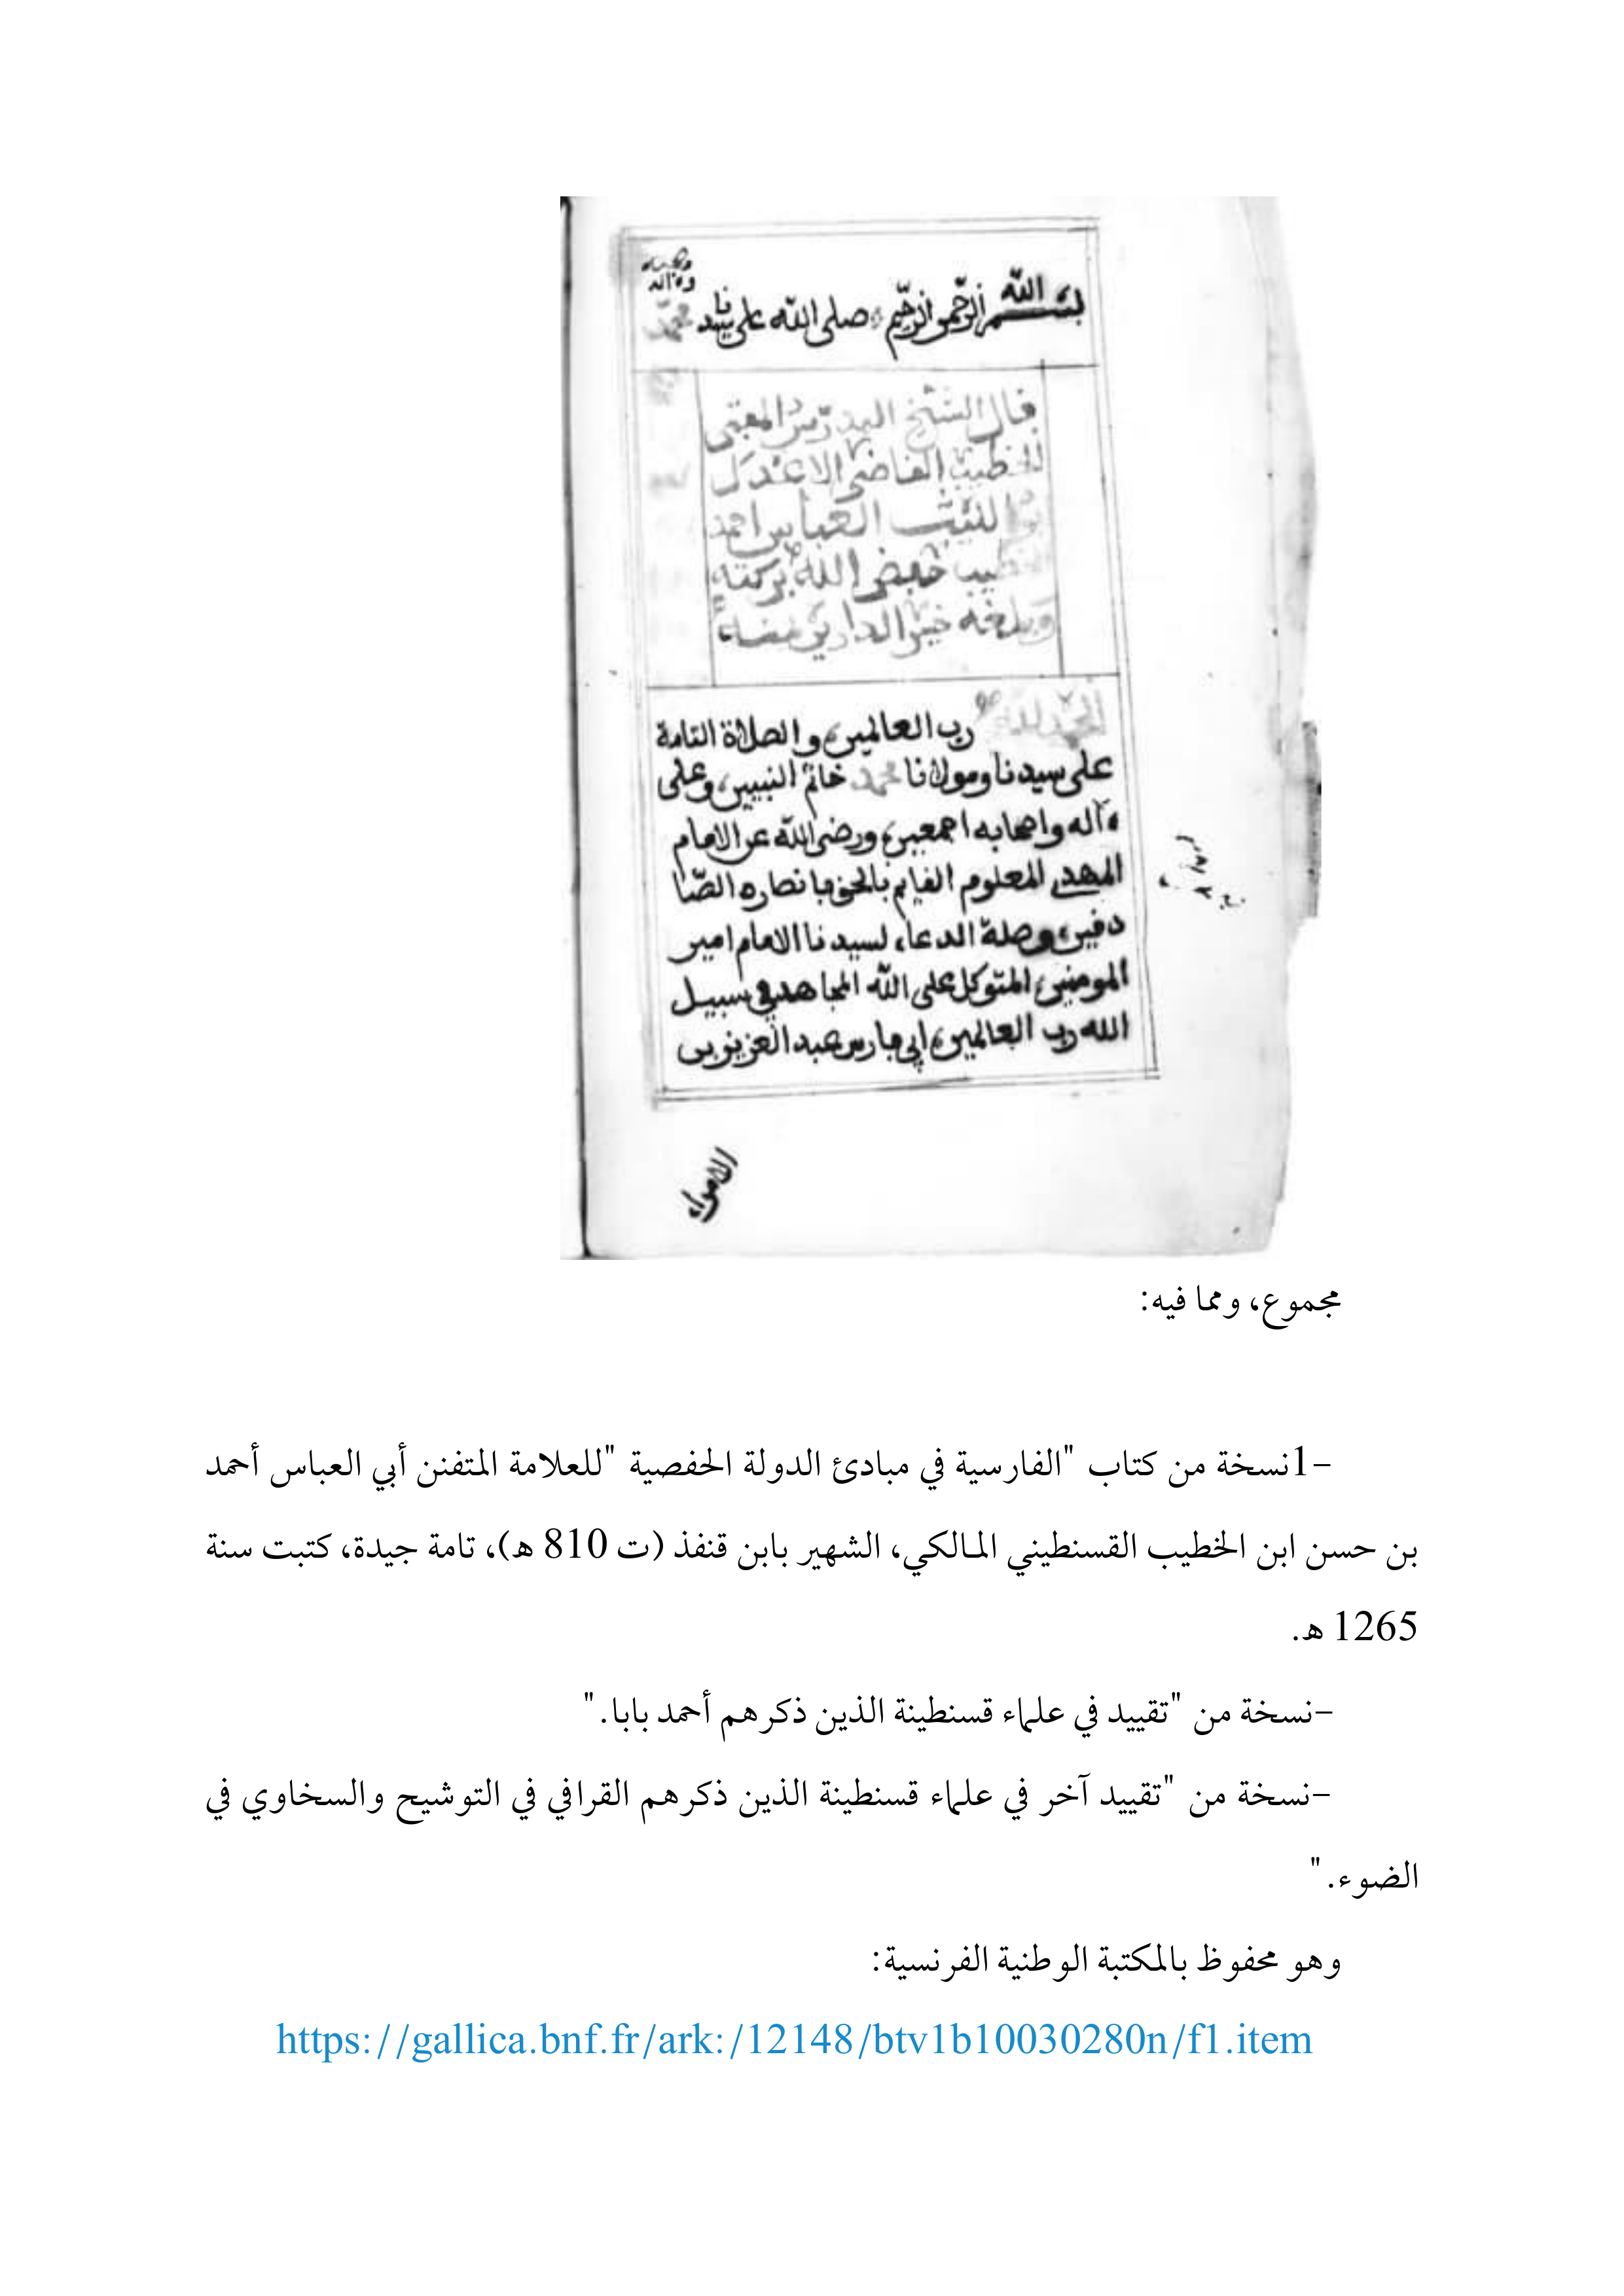 بسم الله الرحمن الرحيم صلى الله على سيدنا محمد
وصحبه
وءاله
قال الشيخ المدرس المفتي
الخطيب القاضي الاعدل
العباس احمد
الخطيب الله بركته
خير الدارين
الحمد لله رب العالمين والصلاة التامة
على سيدنا ومولانا محمد خاتم النبيين وعلى
ءاله واصحابه اجمعين ورضي الله عن الامام
المهدي المعلوم القايم بالحق بانصاره الصا
دقين وصلة الدعاء لسيدنا الامام امير
المومنين المتوكل على الله المجاهد في سبيل
الله رب العالمين ابي فارس عبد العزيز بن
الامراء
مجموع، ومما فيه:
-1نسخة من كتاب "الفارسية في مبادئ الدولة الحفصية "للعلامة المتفنن أبي العباس أحمد
بن حسن ابن الخطيب القسنطيني المالكي، الشهير بابن قنفذ (ت 810 ه)، تامة جيدة، كتبت سنة
1265 ه.
-نسخة من "تقييد في علماء قسنطينة الذين ذكرهم أحمد بابا."
-نسخة من "تقييد آخر في علماء قسنطينة الذين ذكرهم القرافي في التوشيح والسخاوي في
الضوء."
وهو محفوظ بالمكتبة الوطنية الفرنسية:
https://gallica.bnf.fr/ark:/12148/btv1b10030280n/f1.item